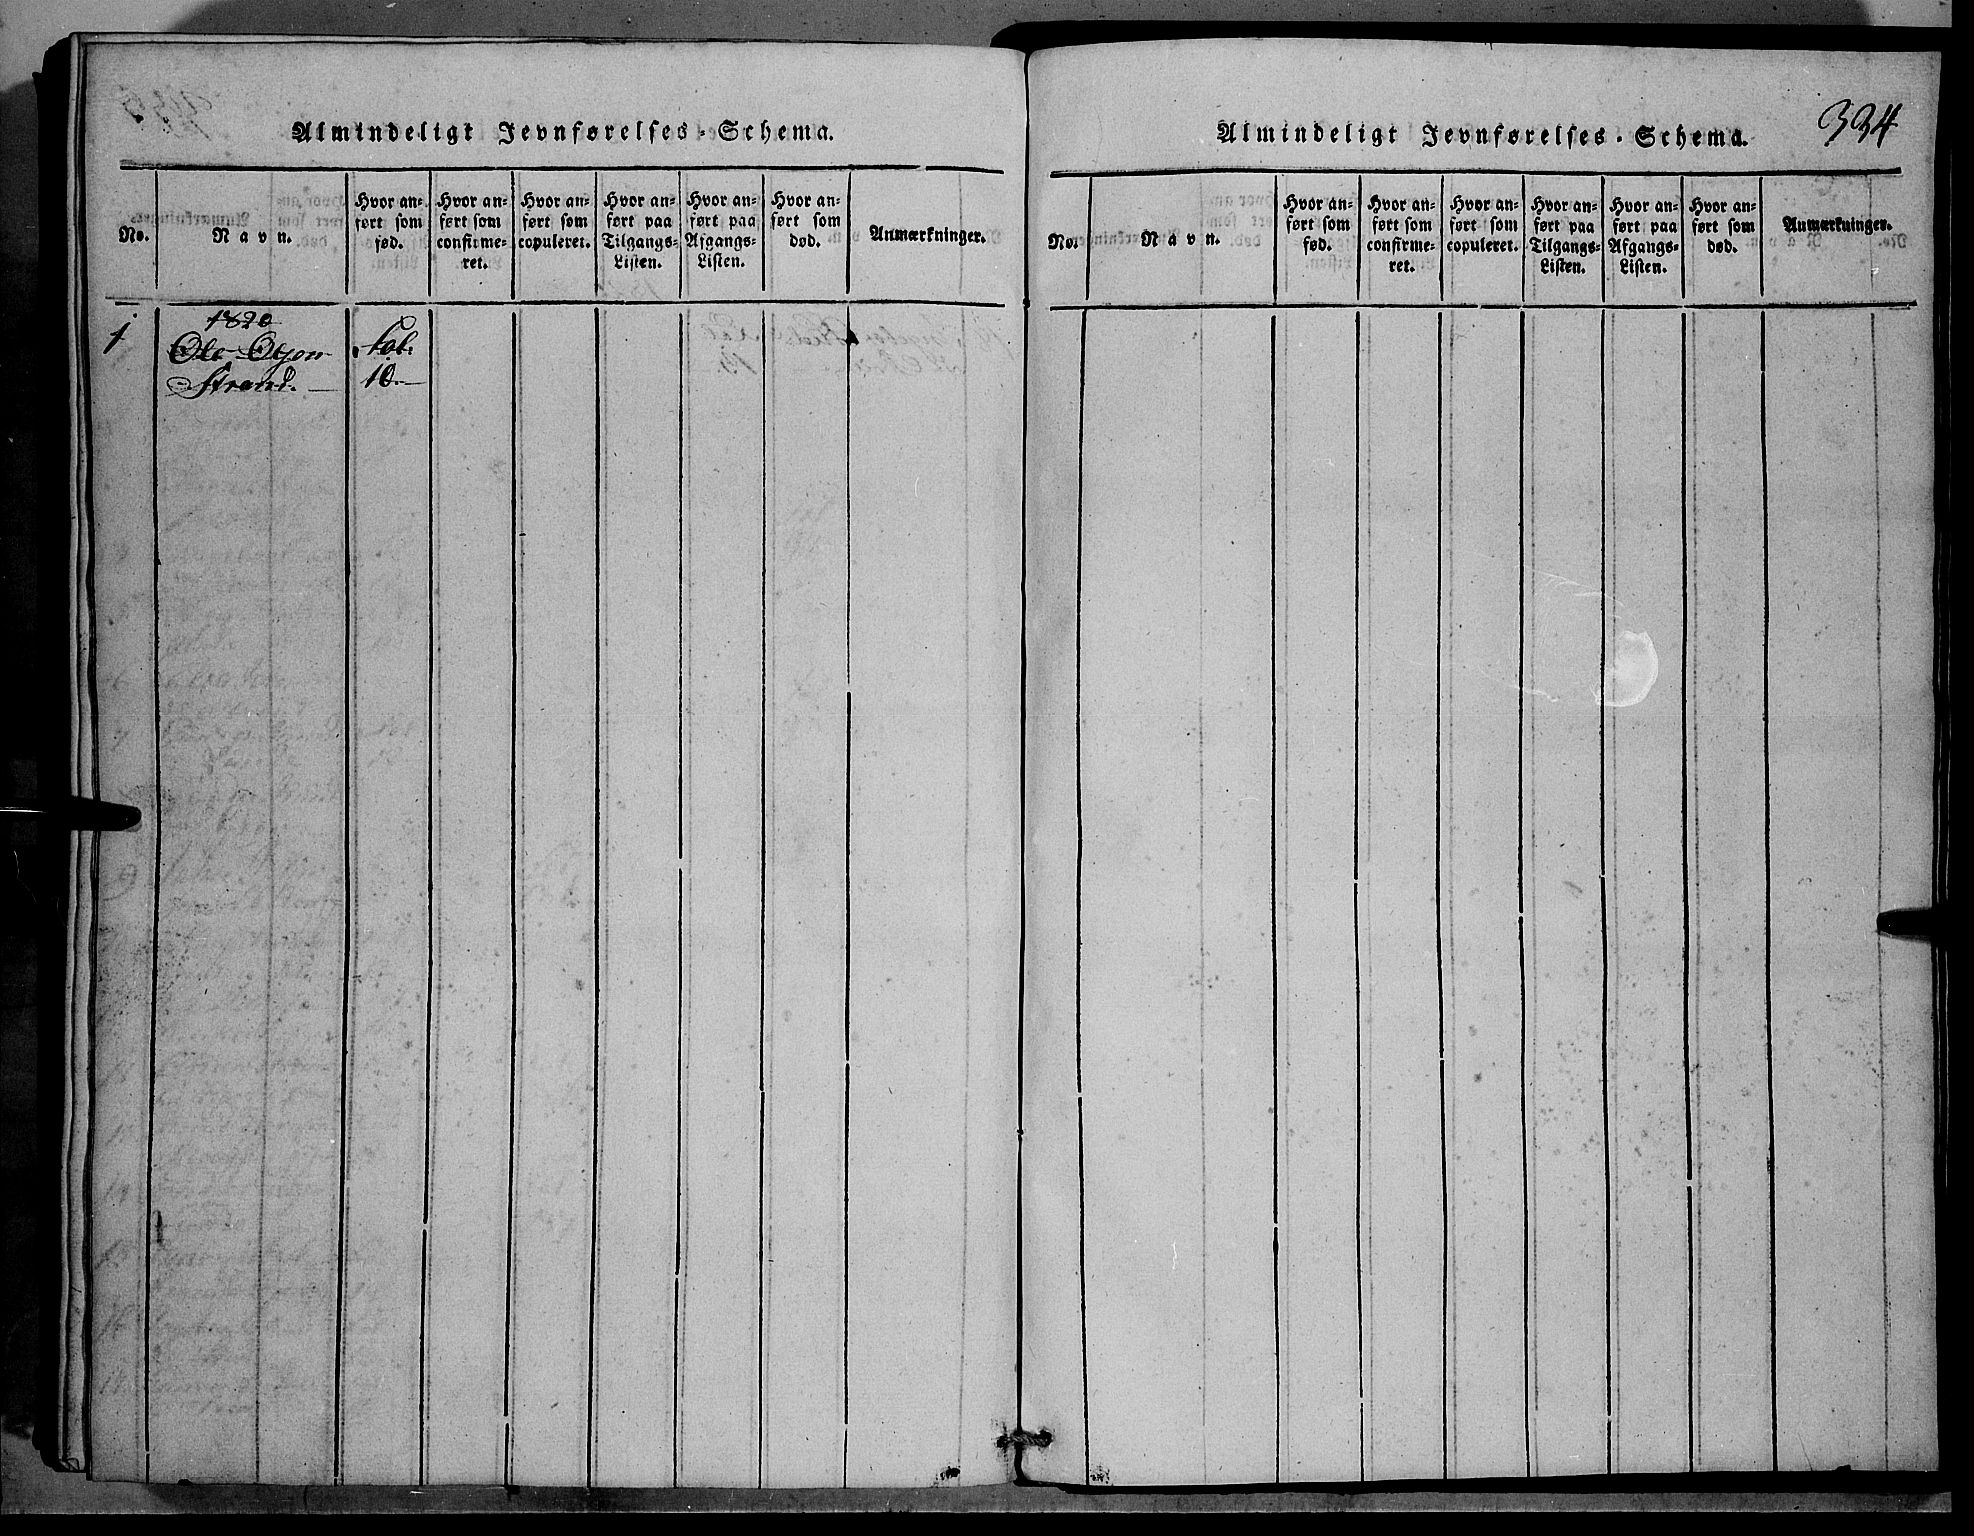 Almindeligt Jevnførelses-Schema.
No.
Navn.
Hvor anført som fød.
Hvor anført som confirmeret.
Hvor anført som copuleret.
Hvor anført paa Tilgangs-Listen.
Hvor anført paa Afgangs-Listen.
Hvor anført som død.
Anmærkninger.
1820
1 Ole Fol.
Strand. 10.
334
Almindeligt Jevnførelses-Schema.
No.
Navn.
Hvor anført som fød.
Hvor anført som confirmeret.
Hvor anført som copuleret.
Hvor anført paa Tilgangs-Listen.
Hvor anført paa Afgangs-Listen.
Hvor anført som død.
Anmærkninger.